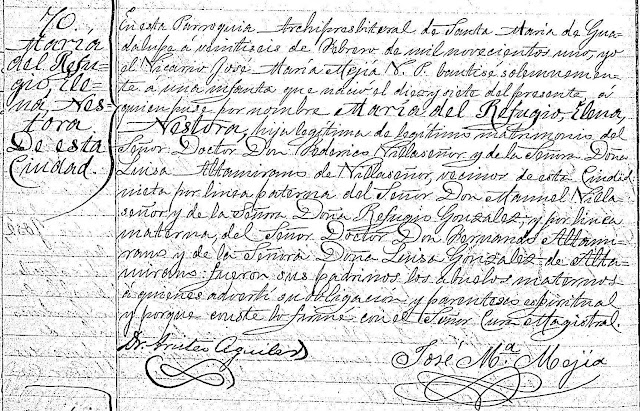 70.
María
del Refu-
gio, Ele-
na, Nes-
tora.
De esta
Ciudad.
En esta Parroquia Archipresbiteral de Santa Maria de Gua-
dalupe a veintiseis de Febrero de mil novecientos uno, yo
el Vicario José María Mejía V. P. bautisé solemnemen-
te a una infanta que nació el diez y siete del presente á
quien puse por nombre María del Refugio, Elena,
Nestora, hija legítima de legítimo matrimonio del
Señor Doctor Don Federico Villaseñor y de la Señora Doña
Luisa Altamirano de Villaseñor, vecinos de esta Ciudad:
nieta por linea paterna del Señor Don Manuel Villa-
señor y de la Señora Doña Refugio Gonzalez y por linea
materna, del Señor Doctor Don Fernando Altami-
rano y de la Señora Doña Luisa Gonzalez de Alta-
mirano: fueron sus padrinos los abuelos maternos
á quienes advertí su obligacion y parentesco espiritual
y porque conste lo firmé con el Señor Cura Magistral.
Dr. Aristeo Aguilar
José Ma. Mejía